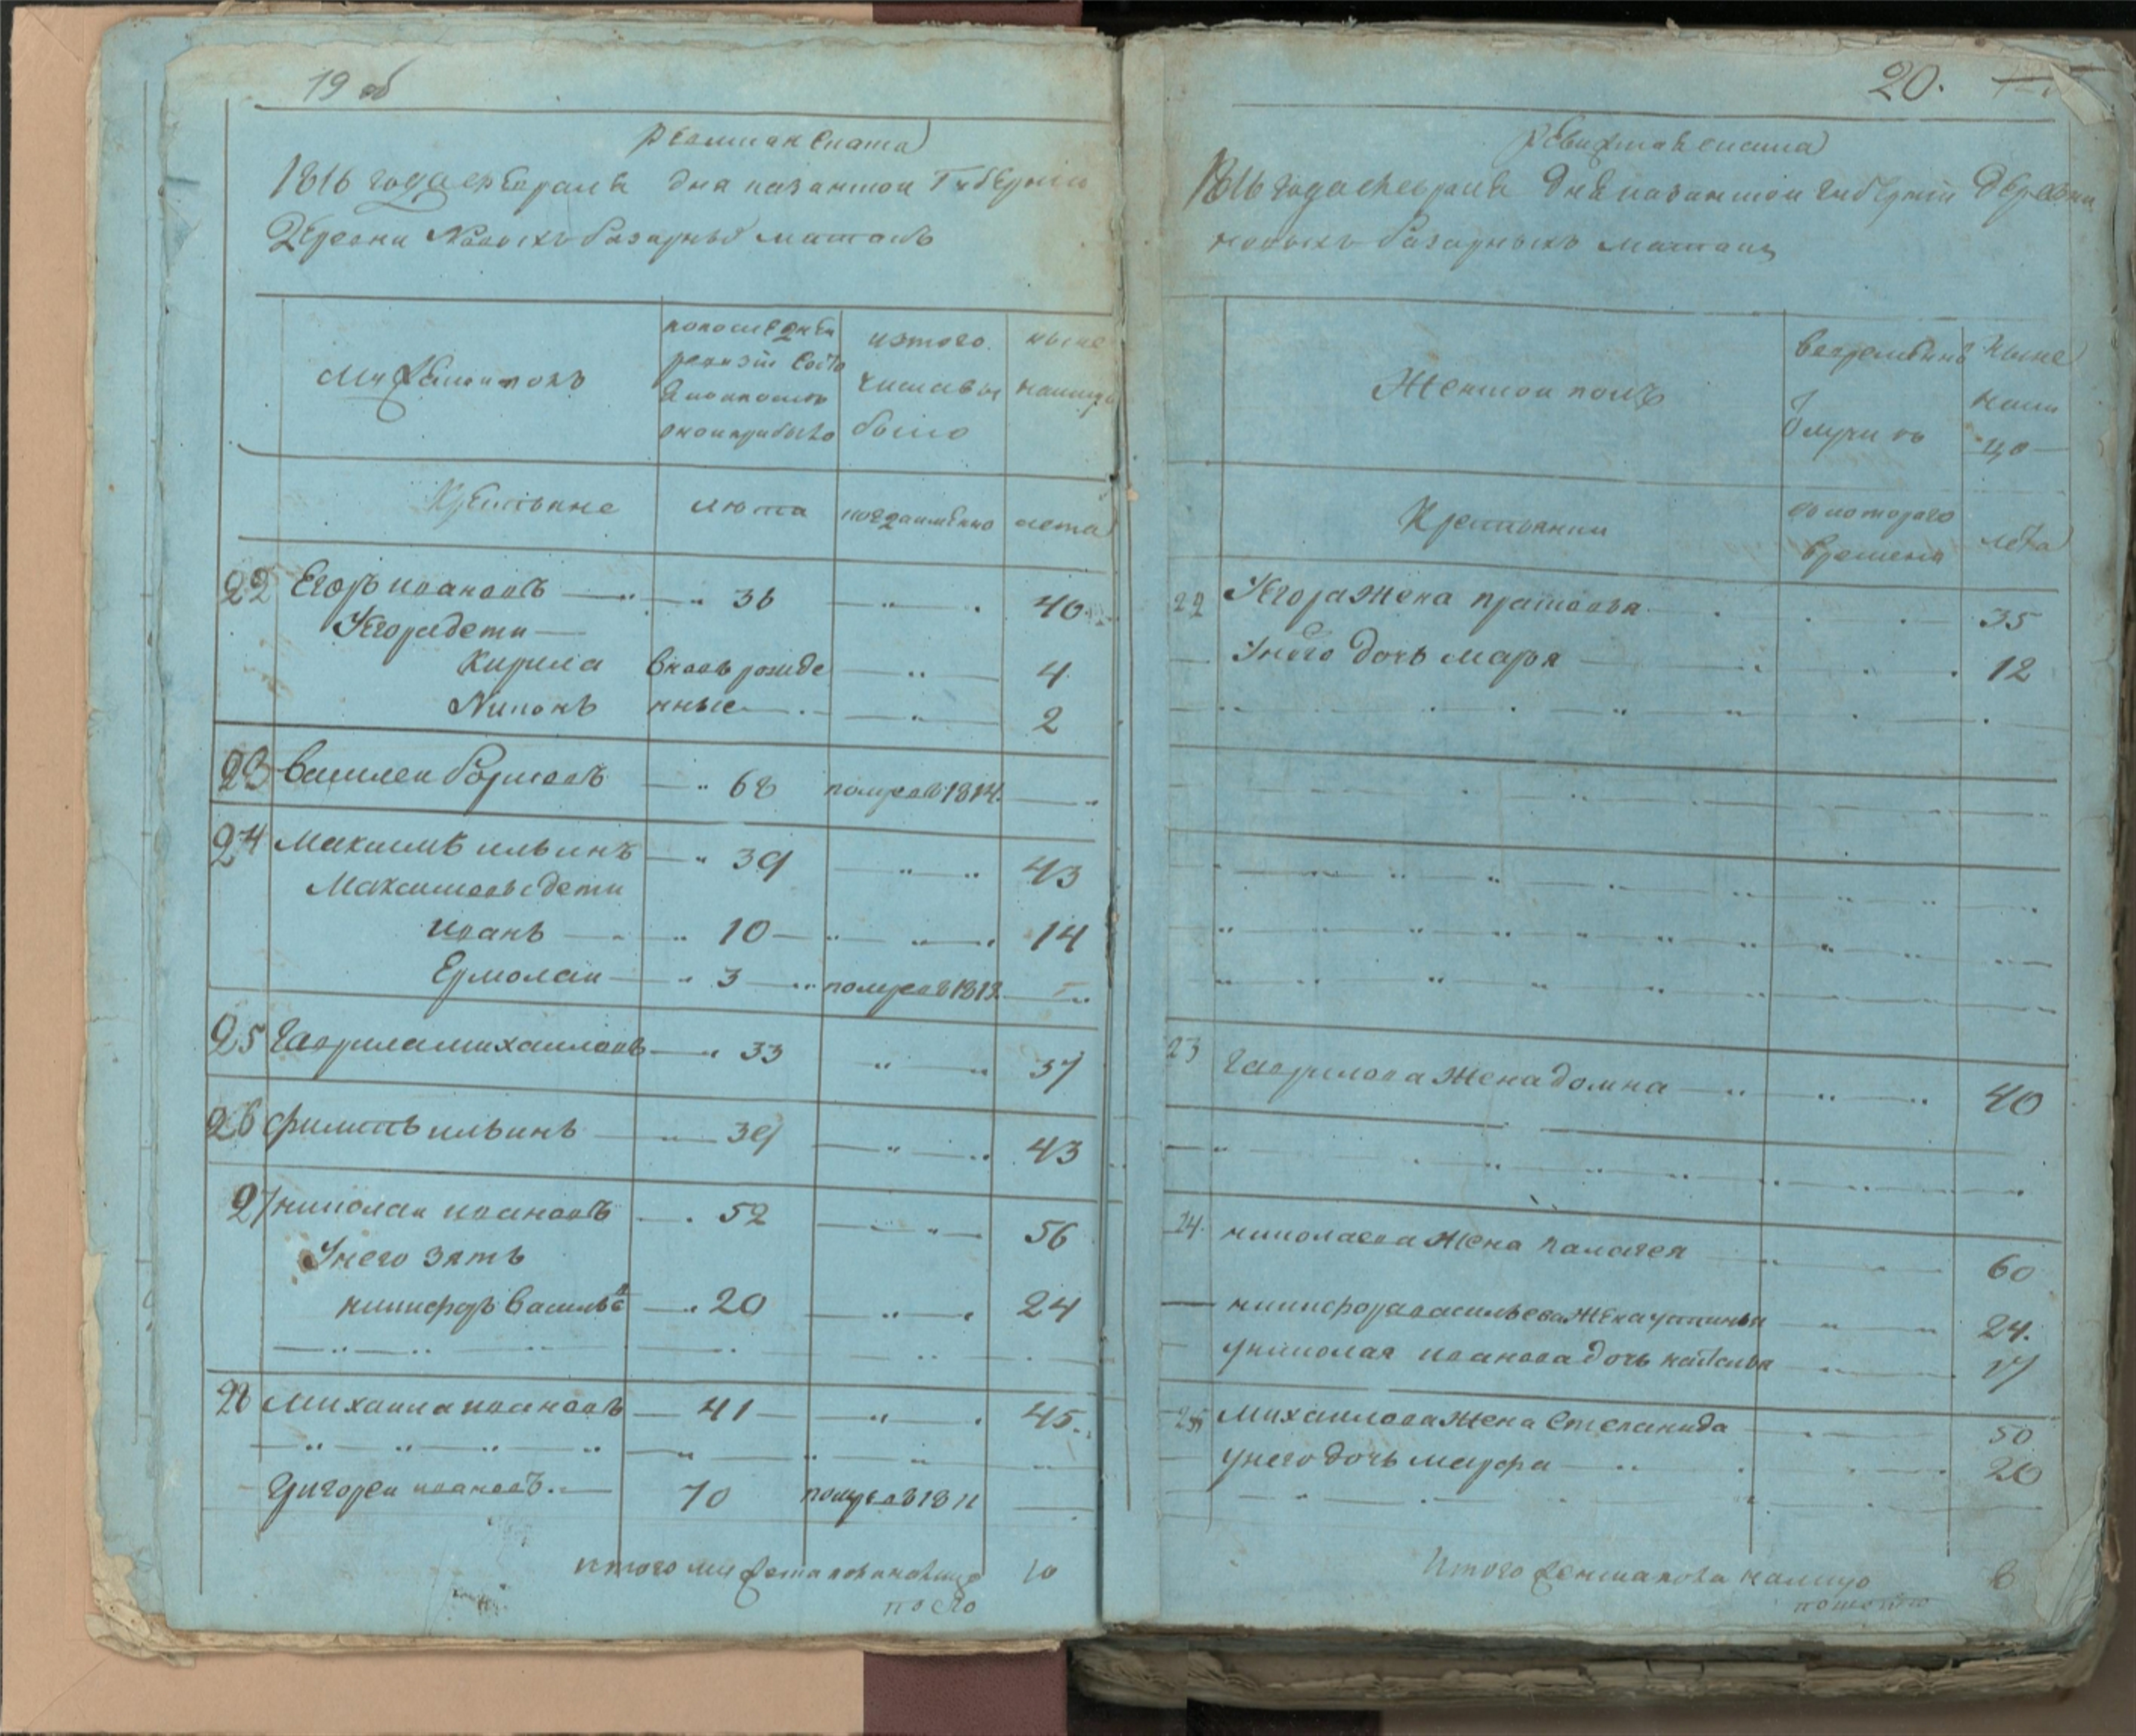 19 об
Ревизская скаска
1816 года февраля дня казанской Губернии
Деревни Новыхъ базарныхъ матакъ
Мужеской полъ
по последней
ревизии состо
яло и после
оной прибыло
изтого
числа вы
было
ныне
налицо
Крестьяне
лета
когда имянно
лета
22 Егоръ ивановъ 36 40
Уегора дети
Кирила вновь рожде 4
Никонъ нные 2
23 василеи борисовъ 68 померъ в 1814
24 Максимъ ильинъ 39 43
Максимовы дети
иванъ 10 14
Ермолаи 3 померъ в 1812
25 Гаврила михаиловъ 33 37
26 филипъ ильинъ 39 43
27 николаи ивановъ 52 56
Унего зять
никифоръ васильевъ 20 24
28 михаила ивановъ 41 45
Григореи ивановъ 10 померъ в 1811
Итого мужеска пола налицо 10
20.
Ревизская скаска
1816 года февраля дня казанской губернии Деревни
новыхъ базарныхъ матакъ
Женской полъ
вовременной
отлучке
Ныне
нали
цо
Крестьянки
скоторого
времени
лета
22 Уегора жена прасковья 35
Унего дочь марья 12
23 гаврилова жена домна 40
24. николаева жена палагея 60
никифора васильева жена устинья 24.
униколая иванова дочь наталья 17
25 михаилова жена Степанида 50
унего дочь марфа 20
Итого женска пола налицо 8